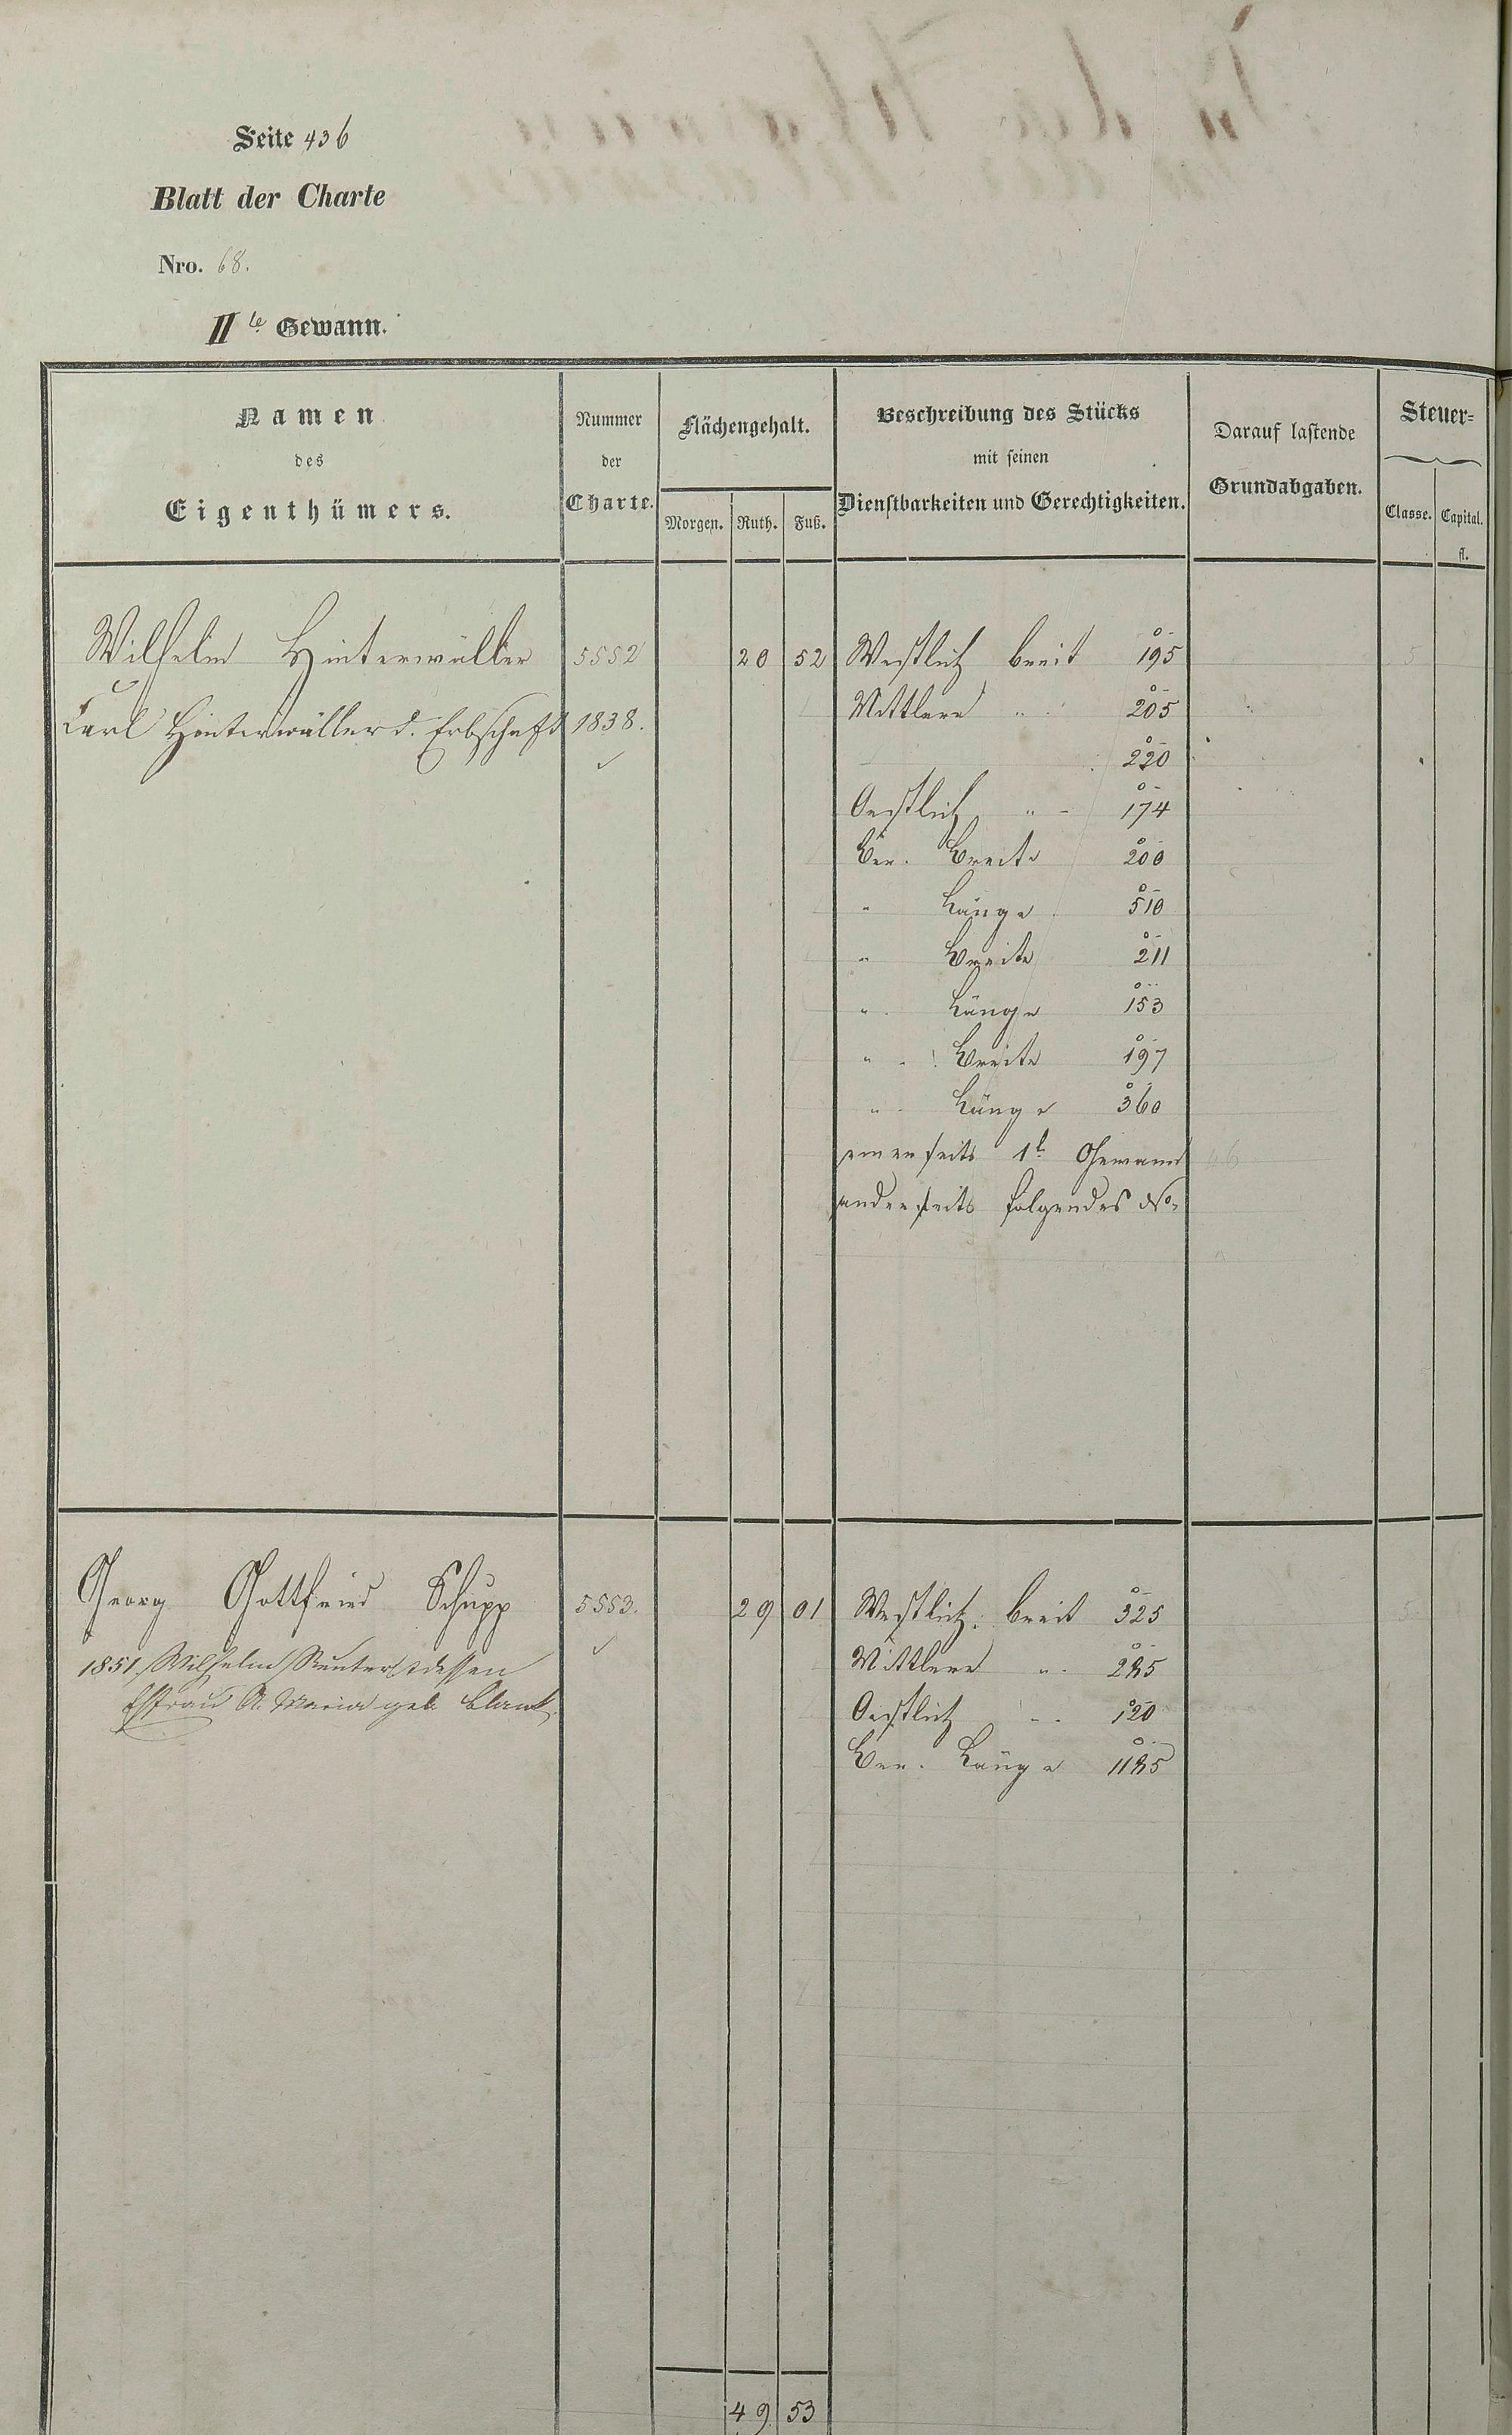 Seite 436
Blatt der Charte
Nro. 68.
IIte Gewann.
Namen des Eigenthümers.
Nummer der Charte.
Flächengehalt.
Morgen. Ruth. Fuß.
Beschreibung des Stücks mit seinen Dienstbarkeiten und Gerechtigkeiten.
Darauf lastende Grundabgaben.
Steuer=
Classe. Capital. fl.
Wilhelm Hinterwäller 5552 20 52 Westlich breit 195 5
Carl Hinterwäller d. Erbschaft 1838. Mittlere " 205
220
Oestlich " 174
Ber. Breite 200
" Länge 510
" Breite 211
" Länge 153
" Breite 197
" Länge 360
einerseits 1te Gewann
anderseits folgendes No.
Georg Gottfried Schupp 5553. 29 01 Westlich breit 325 5
1851. Wilhelm dessen Mittlere " 285
Ehfrau A. Maria geb. Oestlich " 120
Ber. Länge 1185
49 53